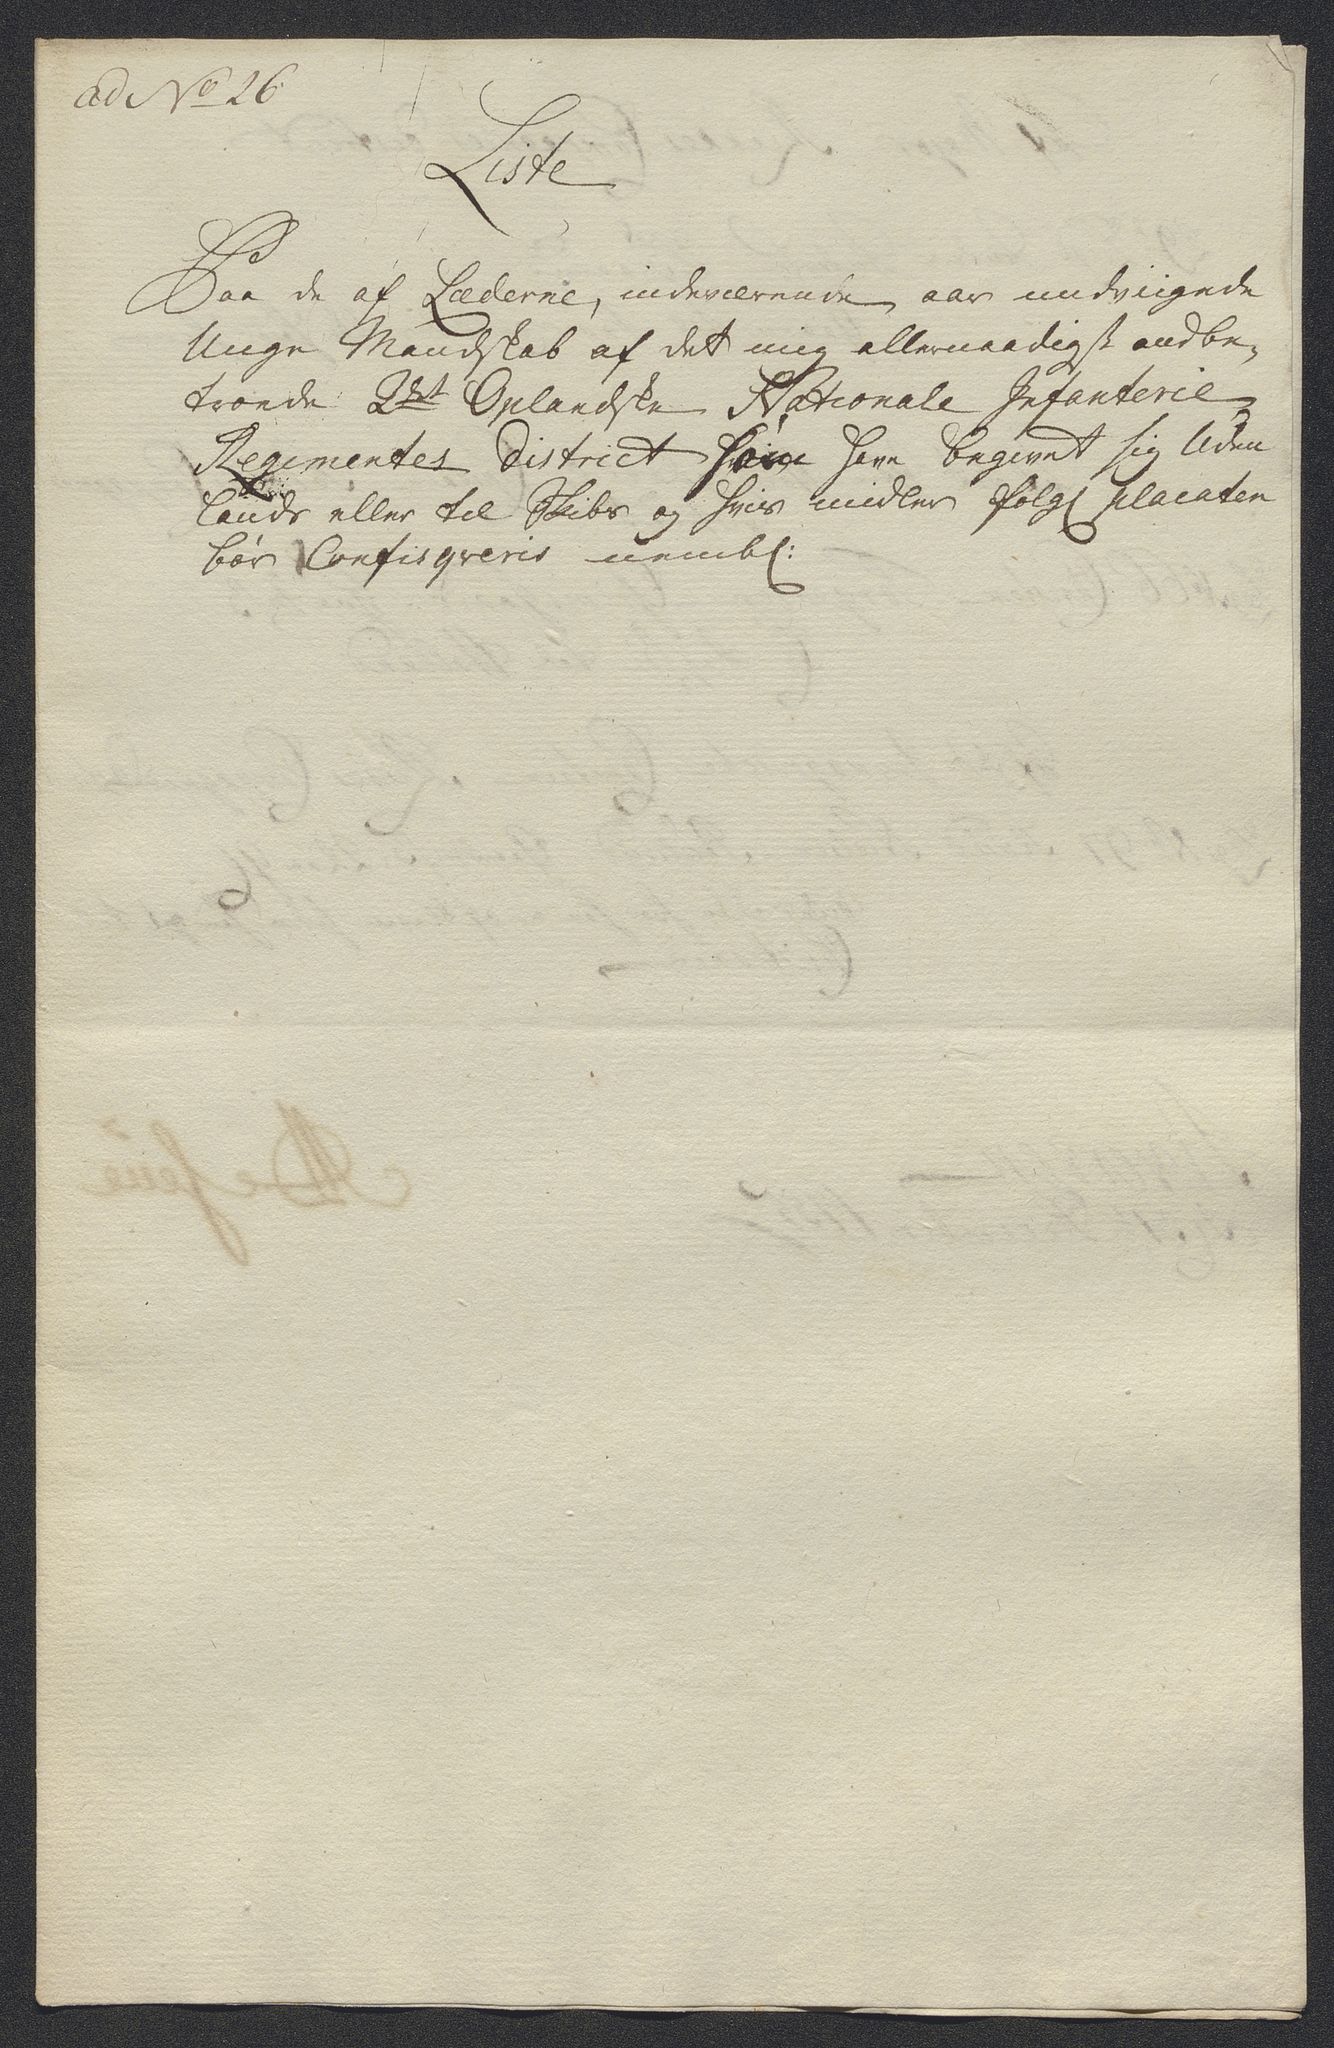 ad No 26
Liste
Paa de af Læderne, indeværende aar undviigede
Unge Mandskab af det mig allernaadigst andbe-
troede 2det Oplandske Nationale Infanterie
Regimentes District som have begivet sig Uden
lands eller til Skibs og hvis midler følgl placaten
bør Confisqveris nembl: